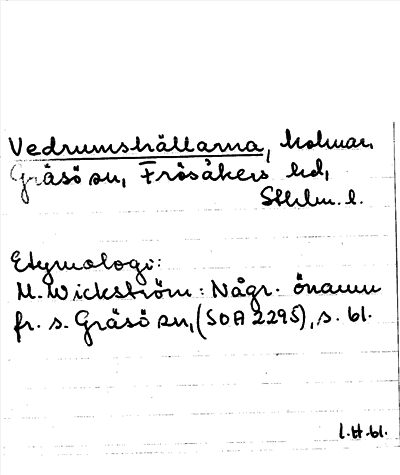 Vedrumshällarna, holmar,
Gräsö sn, Frösåkers hd,
Sthlm. l.
Etymologi:
M. Wickström: Några önamn
fr. s. Gräsö sn, (SOA 2295), s. bl.